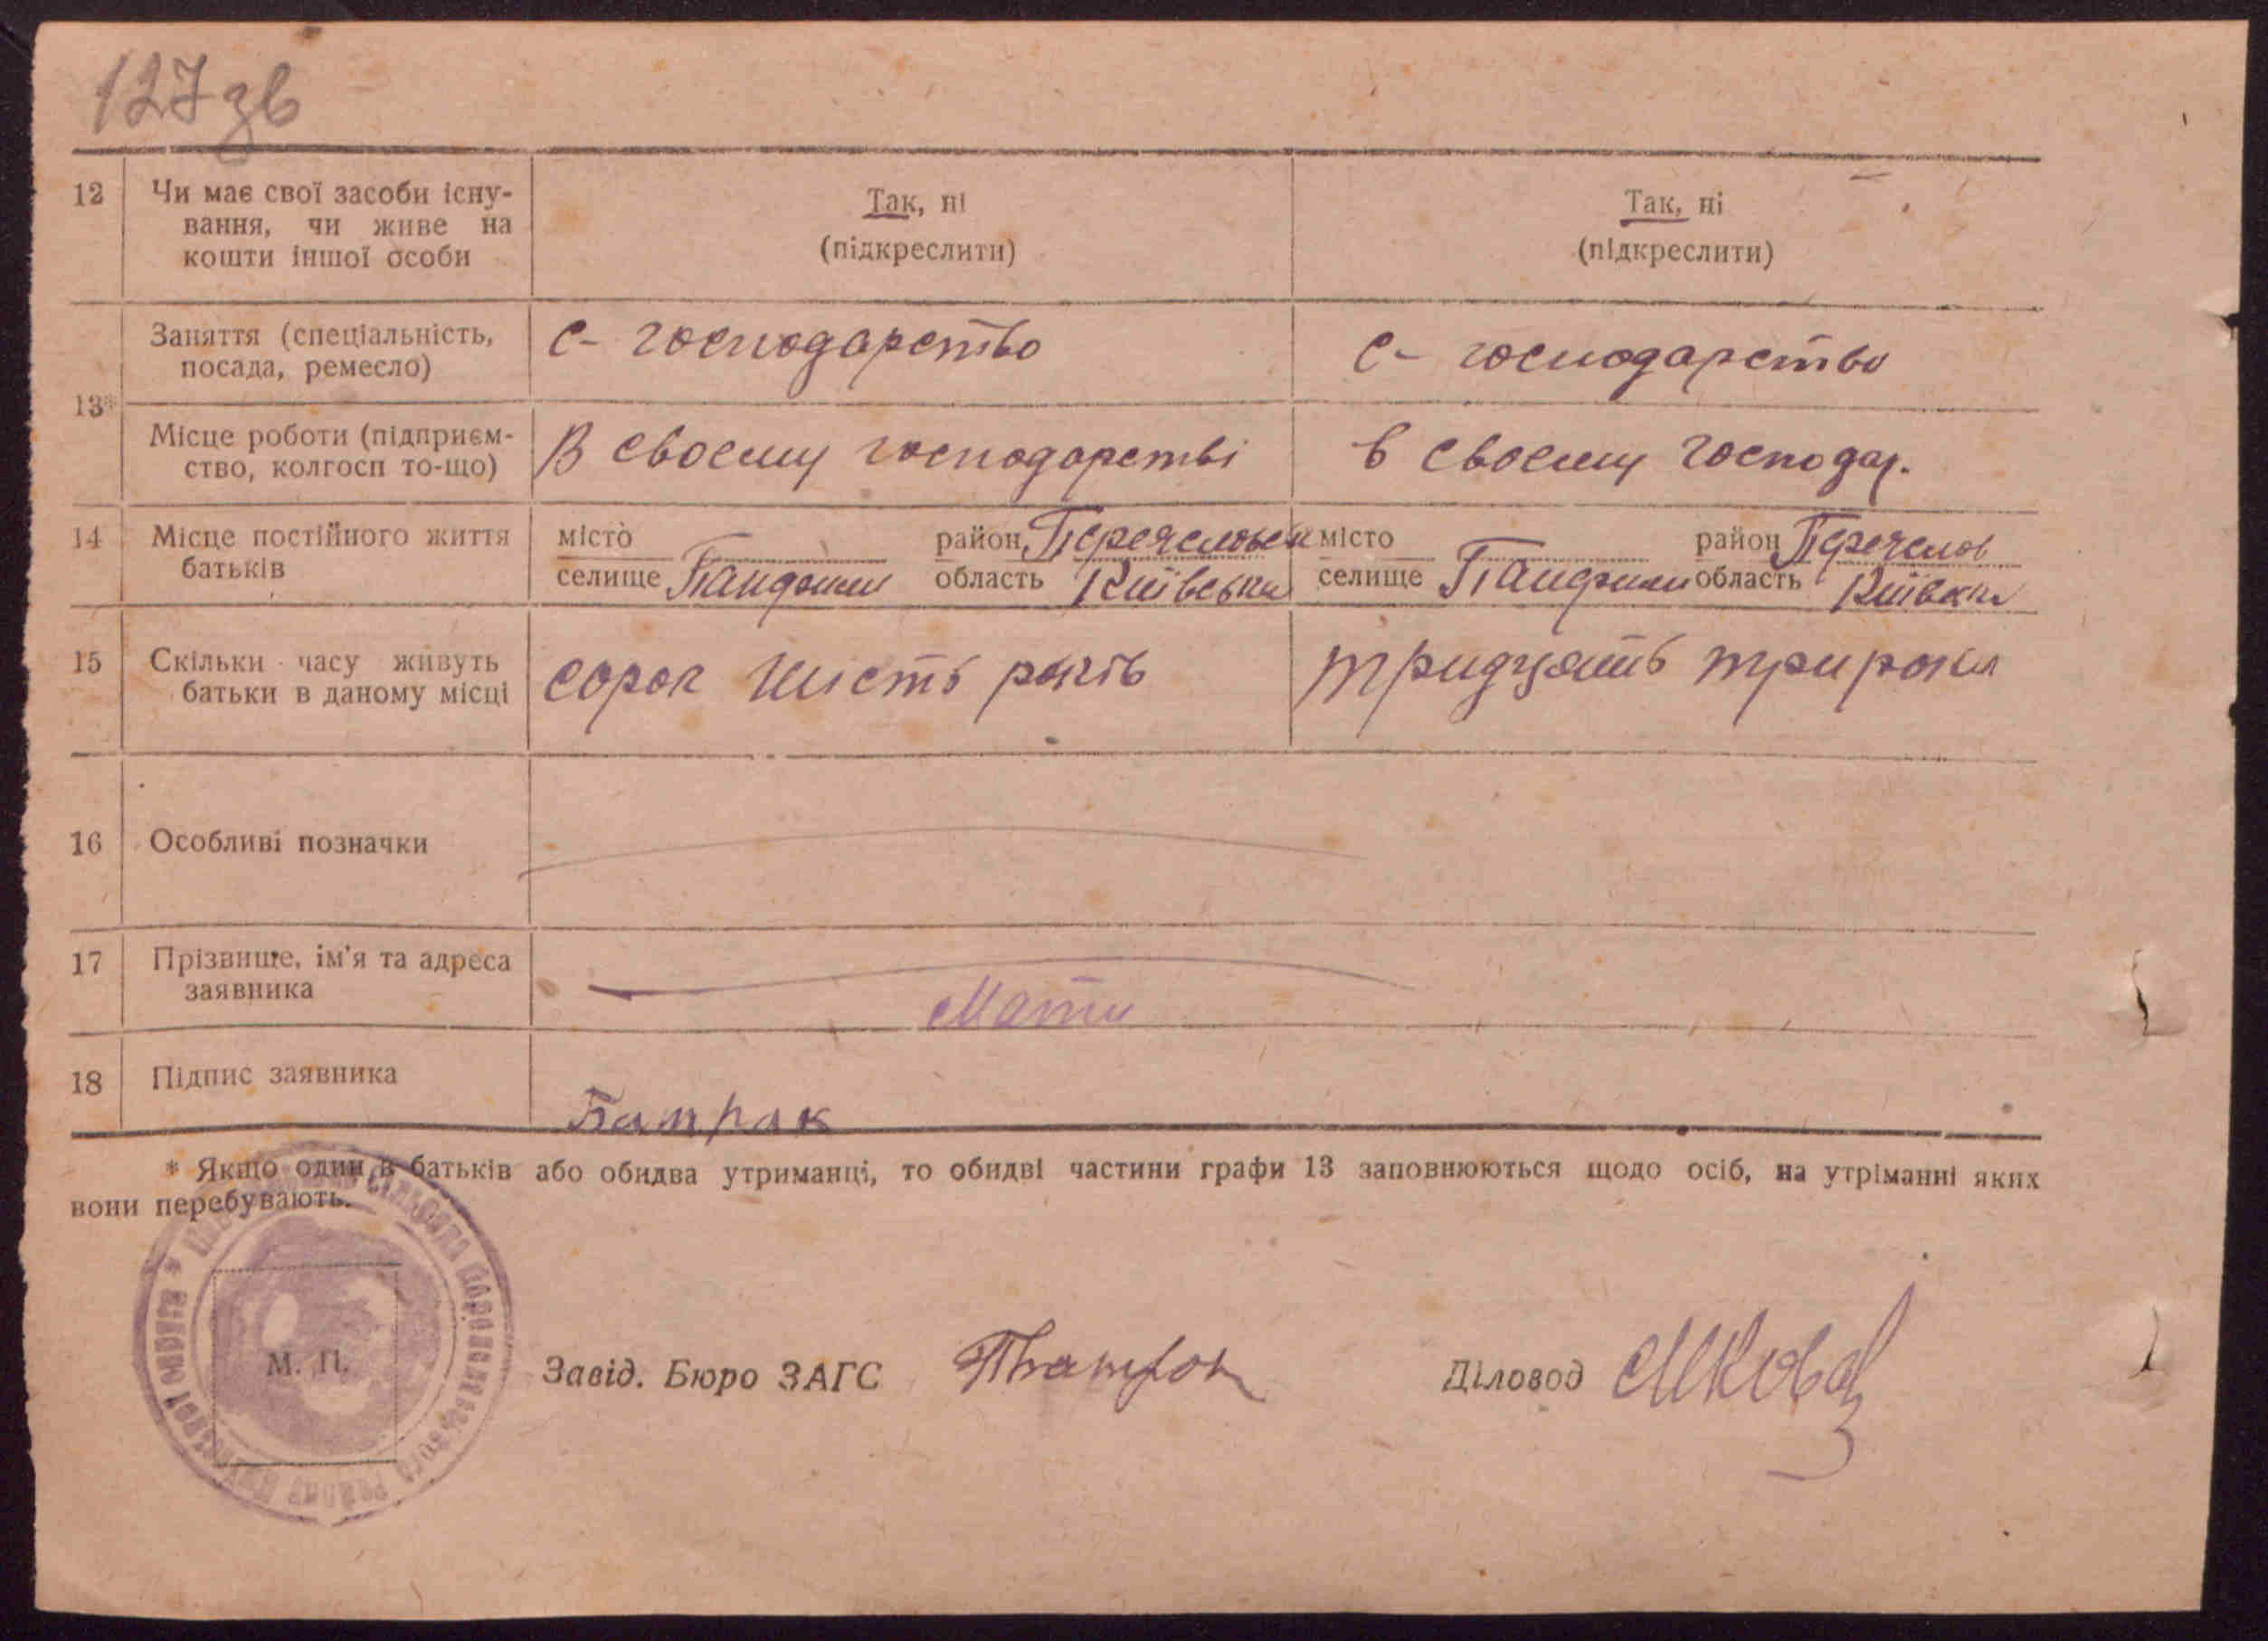 127 зв
12 Чи має свої засоби існу-
вання, чи живе на
кошти іншої особи
Так, ні
(підкреслити)
Так, ні
(підкреслити)
13*
Заняття (спеціальність,
посада, ремесло)
С- господарство
С- господарство
Місце роботи (підприєм-
ство, колгосп то-що)
В своему господарстві
в своему господар.
14 Місце постійного життя
батьків
місто
селище Панфили
район
область Київська
місто
селище Панфили
район Переяслов
область
15 Скільки часу живуть
батьки в даному місці
сорок шість років
тридцять три роки
16 Особливі позначки
17 Прізвище, ім'я та адреса
заявника
Мати
18 Підпис заявника
Батрак
* Якщо один в батьків або обидва утриманці, то обидві частини графи 13 заповнюються щодо осіб, на утріманні яких
вони перебувають.
М. П.
Завід. Бюро ЗАГС
Діловод